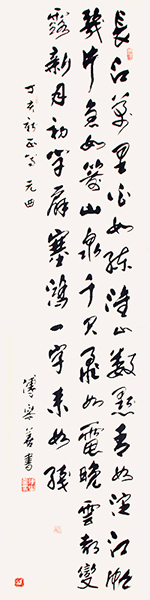 長江萬里白如練淮山數點青如淀江帆
幾片急如箭山泉千尺飛如電晚雲都變
露新月初學扇塞鴻一字來如線
丁亥新正寫元曲
樂善書